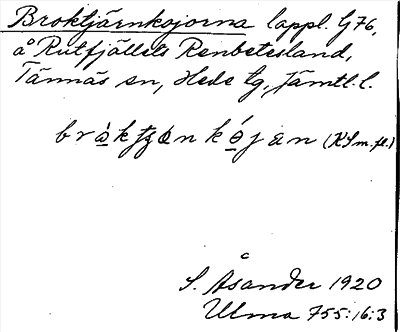 Broktjärnkojorna lappl. G76,
å Rutfjällets Renbetesland,
Tännäs sn, Hede tg, Jämtl. l.
(KS m. fl.)
S. Åsander 1920
Ulma 755:16:3